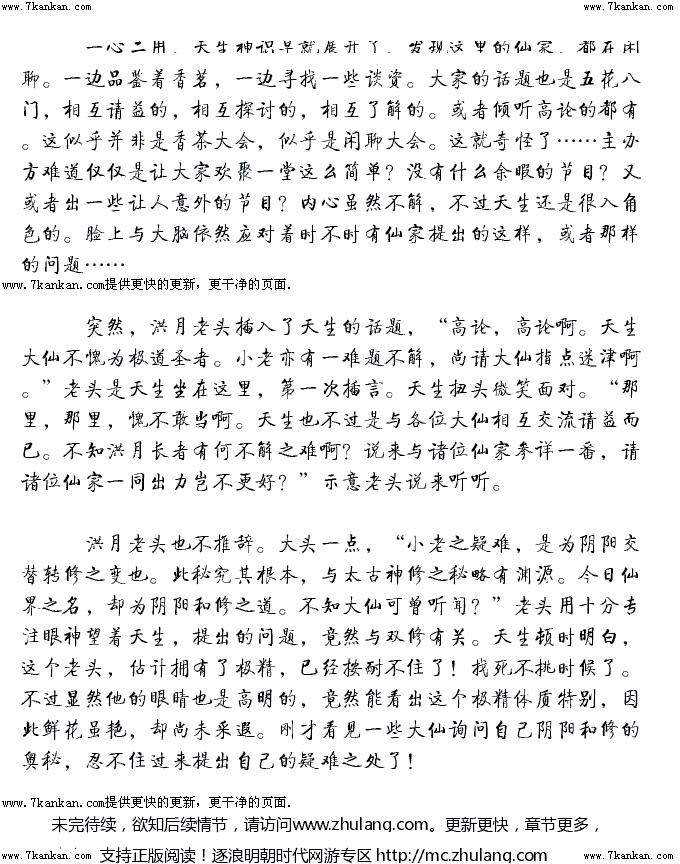 www.7kankan.com www.7kankan.com
一心二用，天生神识早就展开了，发现这里的仙家，都在闲
聊。一边品鉴着香茗，一边寻找一些谈资。大家的话题也是五花八
门，相互请益的，相互探讨的，相互了解的。或者倾听高论的都有
。这似乎并非是香茶大会，似乎是闲聊大会。这就奇怪了……主办
方难道仅仅是让大家欢聚一堂这么简单？没有什么余暇的节目？又
或者出一些让人意外的节目？内心虽然不解，不过天生还是很入角
色的。脸上与大脑依然应对着时不时有仙家提出的这样，或者那样
的问题……
www.7kankan.com提供更快的更新，更干净的页面.
突然，洪月老头插入了天生的话题，“高论，高论啊。天生
大仙不愧为极道圣者。小老亦有一难题不解，尚请大仙指点迷津啊
。”老头是天生坐在这里，第一次插言。天生扭头微笑面对。“那
里，那里，愧不敢当啊。天生也不过是与各位大仙相互交流请益而
已。不知洪月长者有何不解之难啊？说来与诸位仙家参详一番，请
诸位仙家一同出力岂不更好？”示意老头说来听听。
洪月老头也不推辞。大头一点，“小老之疑难，是为阴阳交
替转修之变也。此秘究其根本，与太古神修之秘略有渊源。今日仙
界之名，却为阴阳和修之道。不知大仙可曾听闻？”老头用十分专
注眼神望着天生，提出的问题，竟然与双修有关。天生顿时明白，
这个老头，估计拥有了极精，已经按耐不住了！找死不挑时候了。
不过显然他的眼睛也是高明的，竟然能看出这个极精体质特别，因
此鲜花虽艳，却尚未采遐。刚才看见一些大仙询问自己阴阳和修的
奥秘，忍不住过来提出自己的疑难之处了！
www.7kankan.com提供更快的更新，更干净的页面.
未完待续，欲知后续情节，请访问www.zhulang.com。更新更快，章节更多，
支持正版阅读！逐浪明朝时代网游专区 http://mc.zhulang.com/
www.7kankan.com www.7kankan.com